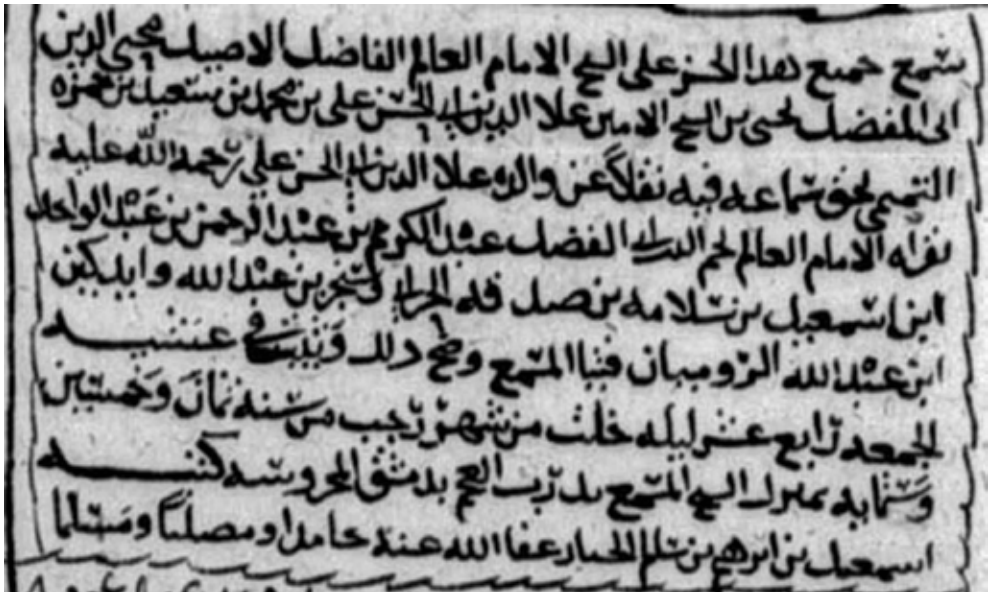 سمع جميع هذا الجزء على الشيخ الامام العالم الفاضل الاصيل محيي الدين
ابى المفضل يحيى بن الشيخ الامين علا الدين ابى الحسن على بن محمد بن سعيد بن حمزه
التميمي بحق سماعه فيه نقلا عن والده علا الدين ابى الحسن علي رحمه الله عليه
بقراه الامام العالم نجم الدين ابى الفضل عبد الكريم بن عبد الرحمن بن عبد الواحد
ابن اسمعيل بن سلامه بن وسنجر بن عبد الله وايدكين
ابن عبد الله الروميان فتيا المسمع وصح ذلك وثبت في عشيه
الجمعه رابع عشر ليله خلت من شهر رجب من سنه ثمان وخمسين
وستمايه بمنزل الشيخ المسمع بدرب العجم بدمشق المحروسه كتبه
اسمعيل بن ابرهيم بن سلم الخباز عفا الله عنه حامدا ومصليا ومسلما